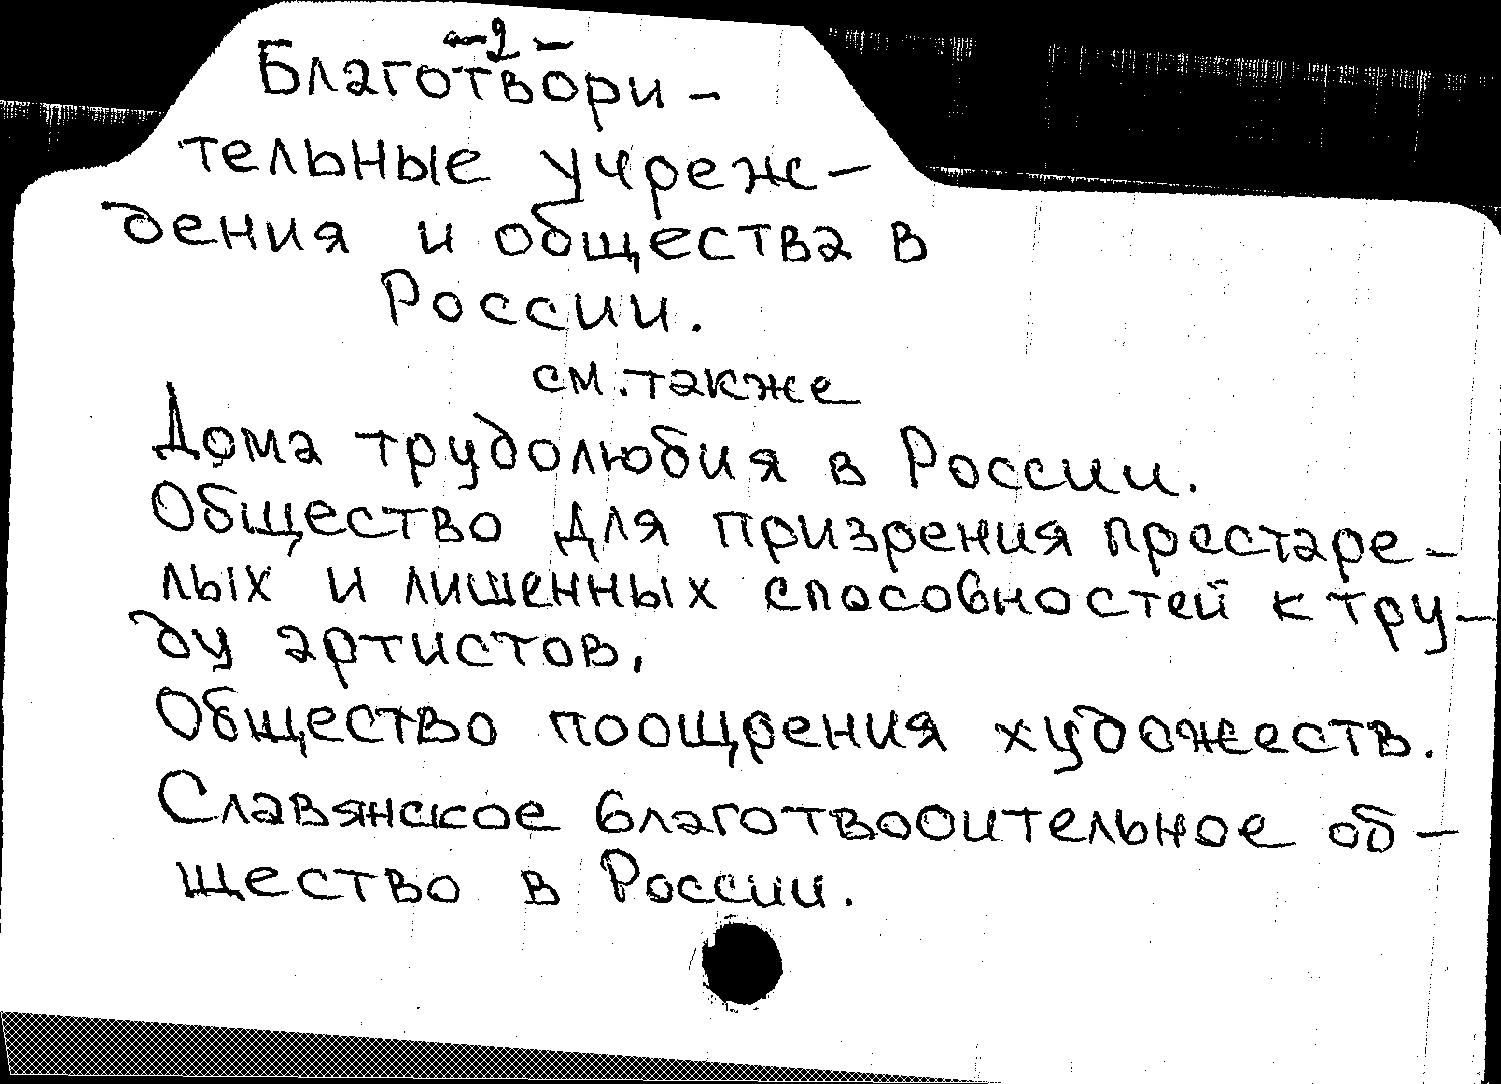 -2-
Благотвори-
тельные учреж-
дения и общества в
России.
см. также
Дома трудолюбия в России.
Общество для призрения престаре-
лых и лишенных способностей к тру-
ду артистов.
Общество поощрения художеств.
Славянское благотворительное об-
щество в России.